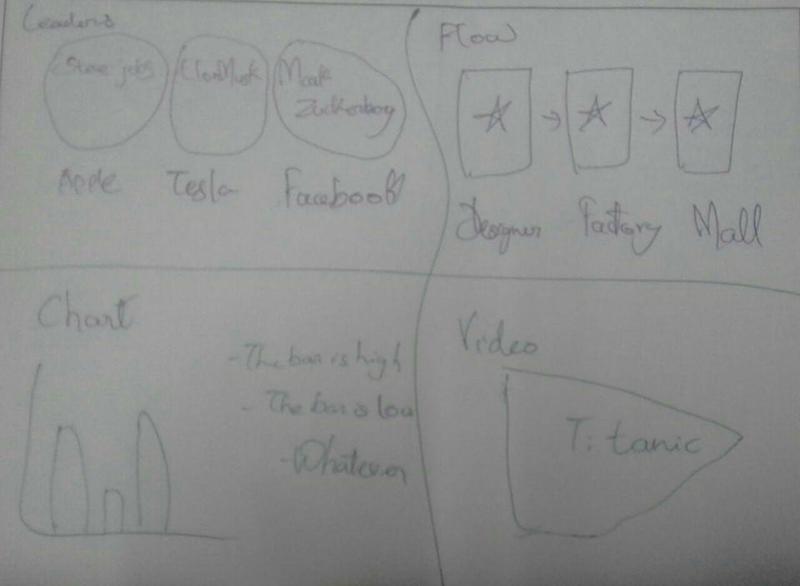 Leaders
Steve jobs
Elon Musk
Mark
Zuckerberg
Apple
Tesla
Facebook
Flow
Designer
Factory
Mall
Chart
- The bar is high
- The bar is low
- Whatever
Video
Titanic